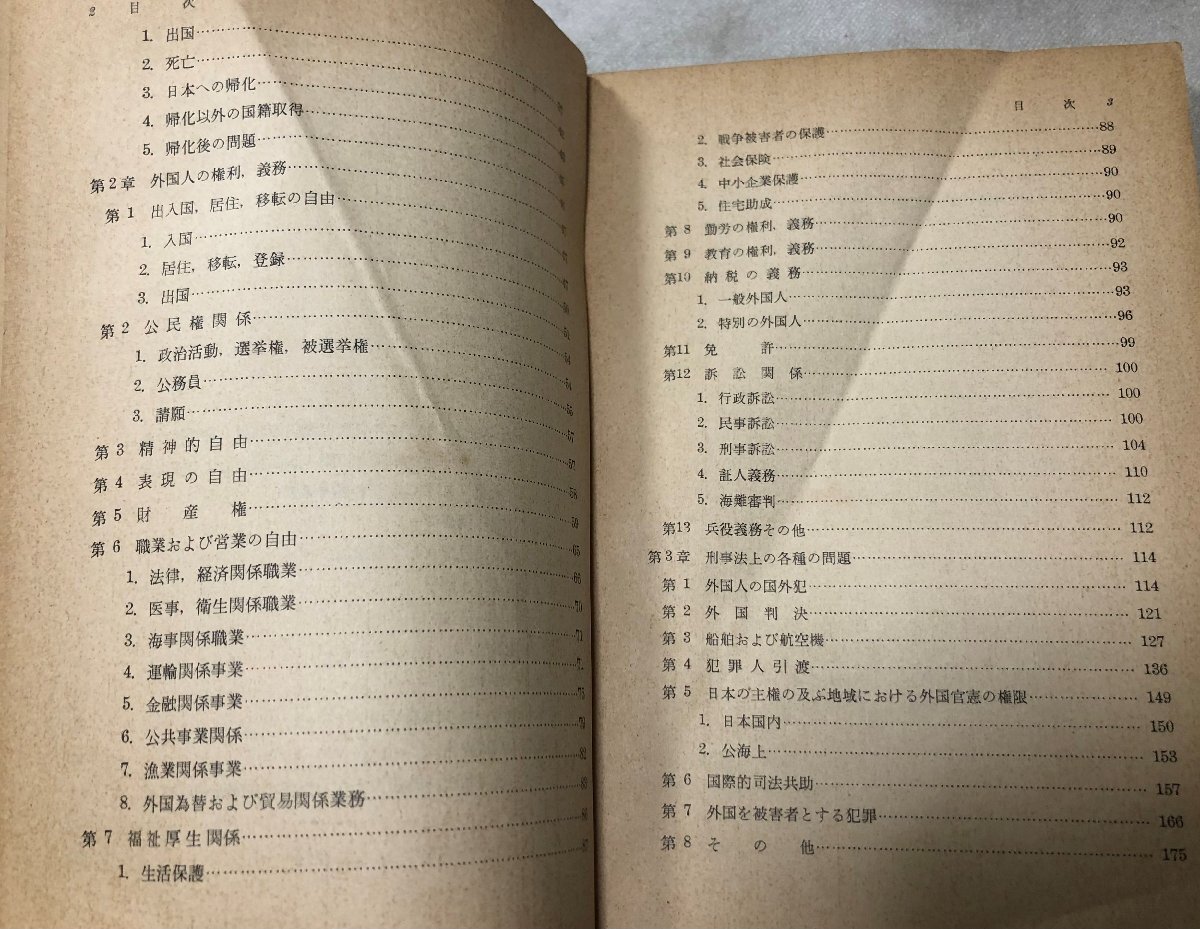 2 目 次
1. 出国
2. 死亡
3. 日本への帰化
4. 帰化以外の国籍取得
5. 帰化後の問題
第2章 外国人の権利, 義務
第1 出入国, 居住, 移転の自由
1. 入国
2. 居住, 移転, 登録
3. 出国
第2 公民権関係
1. 政治活動, 選挙権, 被選挙権
2. 公務員
3. 請願
第3 精神的自由……57
第4 表現の自由……58
第5 財産権……59
第6 職業および営業の自由……65
1. 法律, 経済関係職業……66
2. 医事, 衛生関係職業……70
3. 海事関係職業……71
4. 運輸関係事業
5. 金融関係事業……75
6. 公共事業関係……79
7. 漁業関係事業……82
8. 外国為替および貿易関係業務
第7 福祉厚生関係
1. 生活保護……87
目 次 3
2. 戦争被害者の保護……88
3. 社会保険……89
4. 中小企業保護……90
5. 住宅助成……90
第8 勤労の権利, 義務……90
第9 教育の権利, 義務……92
第10 納税の義務……93
1. 一般外国人……93
2. 特別の外国人……96
第11 免許……99
第12 訴訟関係……100
1. 行政訴訟……100
2. 民事訴訟……100
3. 刑事訴訟……104
4. 証人義務……110
5. 海難審判……112
第13 兵役義務その他……112
第3章 刑事法上の各種の問題……114
第1 外国人の国外犯……114
第2 外国判決……121
第3 船舶および航空機……127
第4 犯罪人引渡……136
第5 日本の主権の及ぶ地域における外国官憲の権限……149
1. 日本国内……150
2. 公海上……153
第6 国際的司法共助……157
第7 外国を被害者とする犯罪……166
第8 その他……175